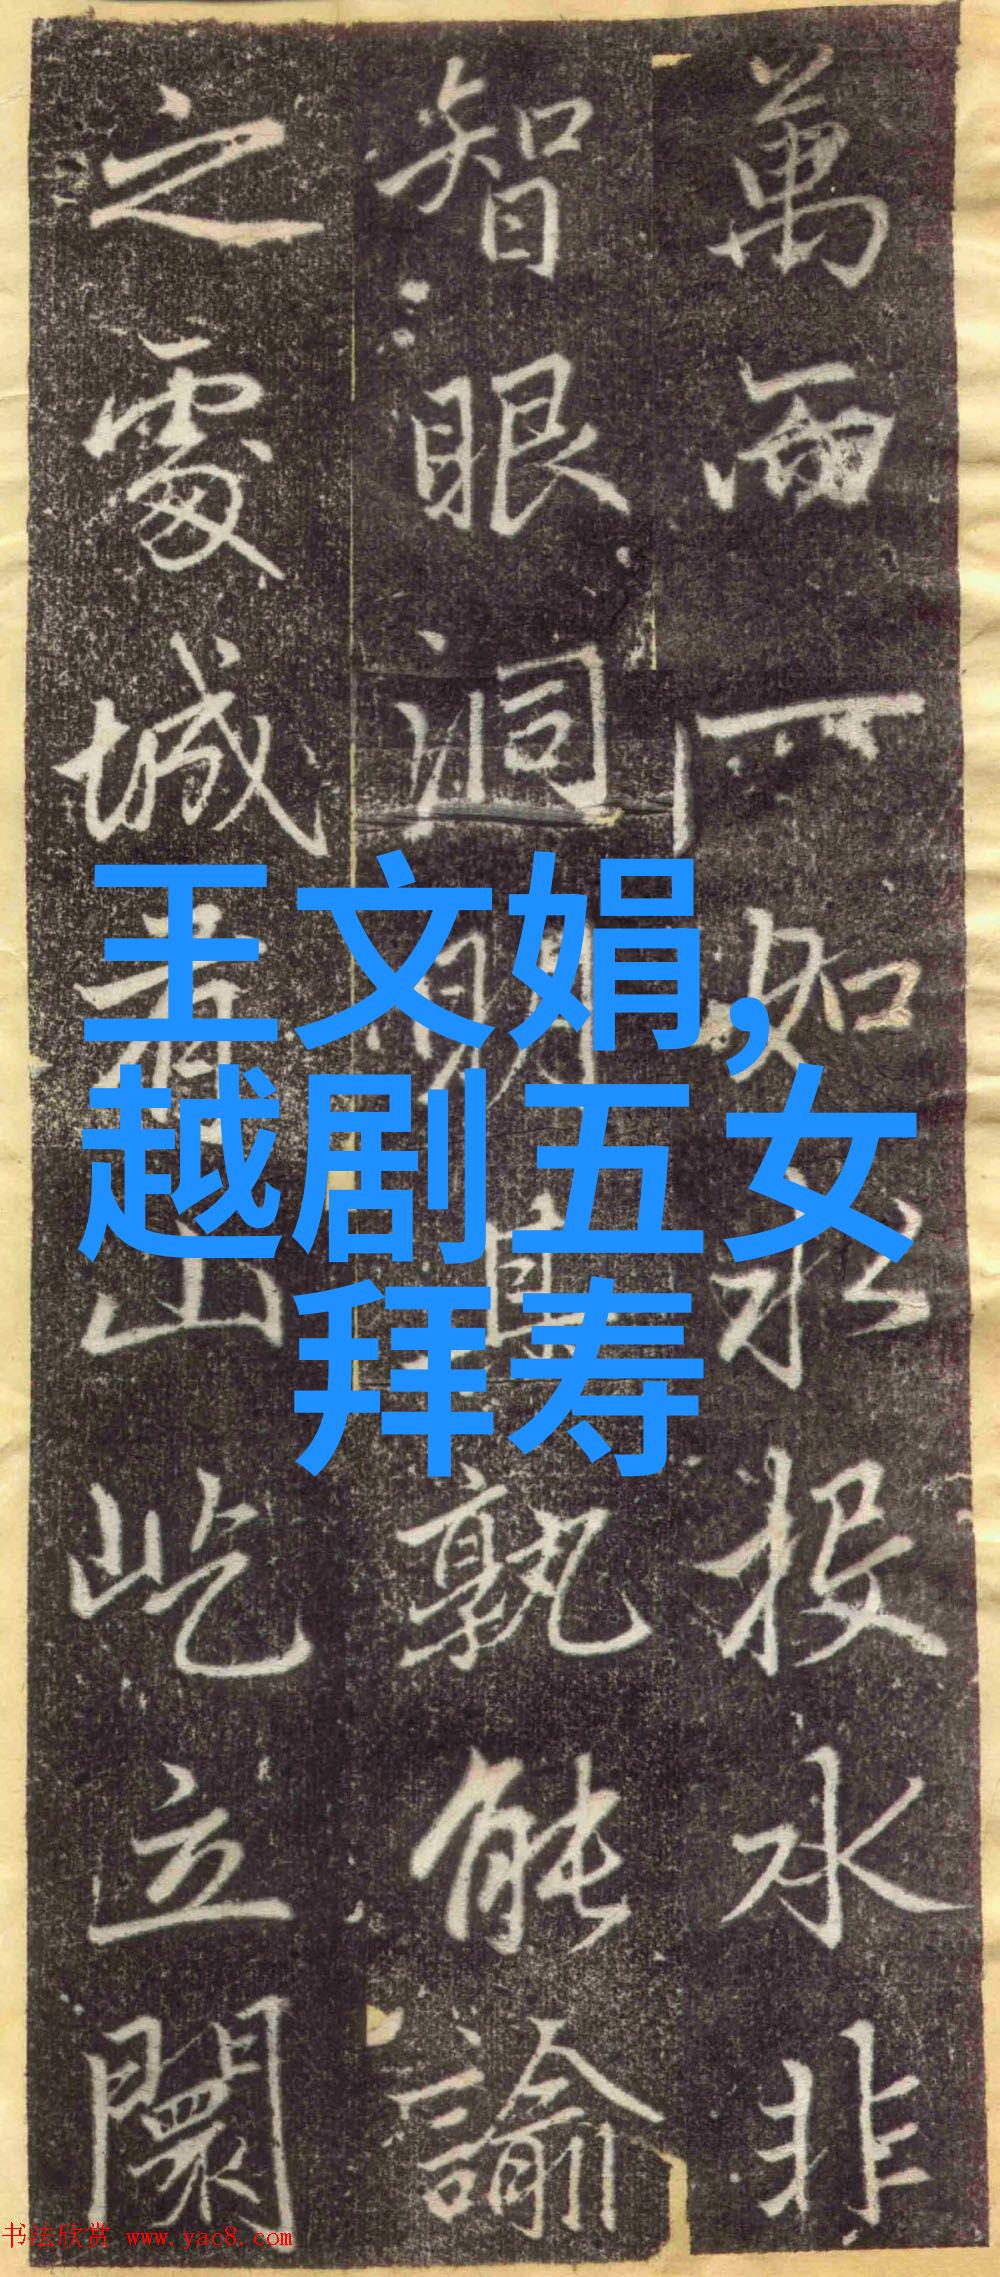 萬而一如水投水非
智眼洞孰能諭
之處城山屹立闤
王文娟,
越剧五女
拜寿
书法欣赏 www.yac8.com